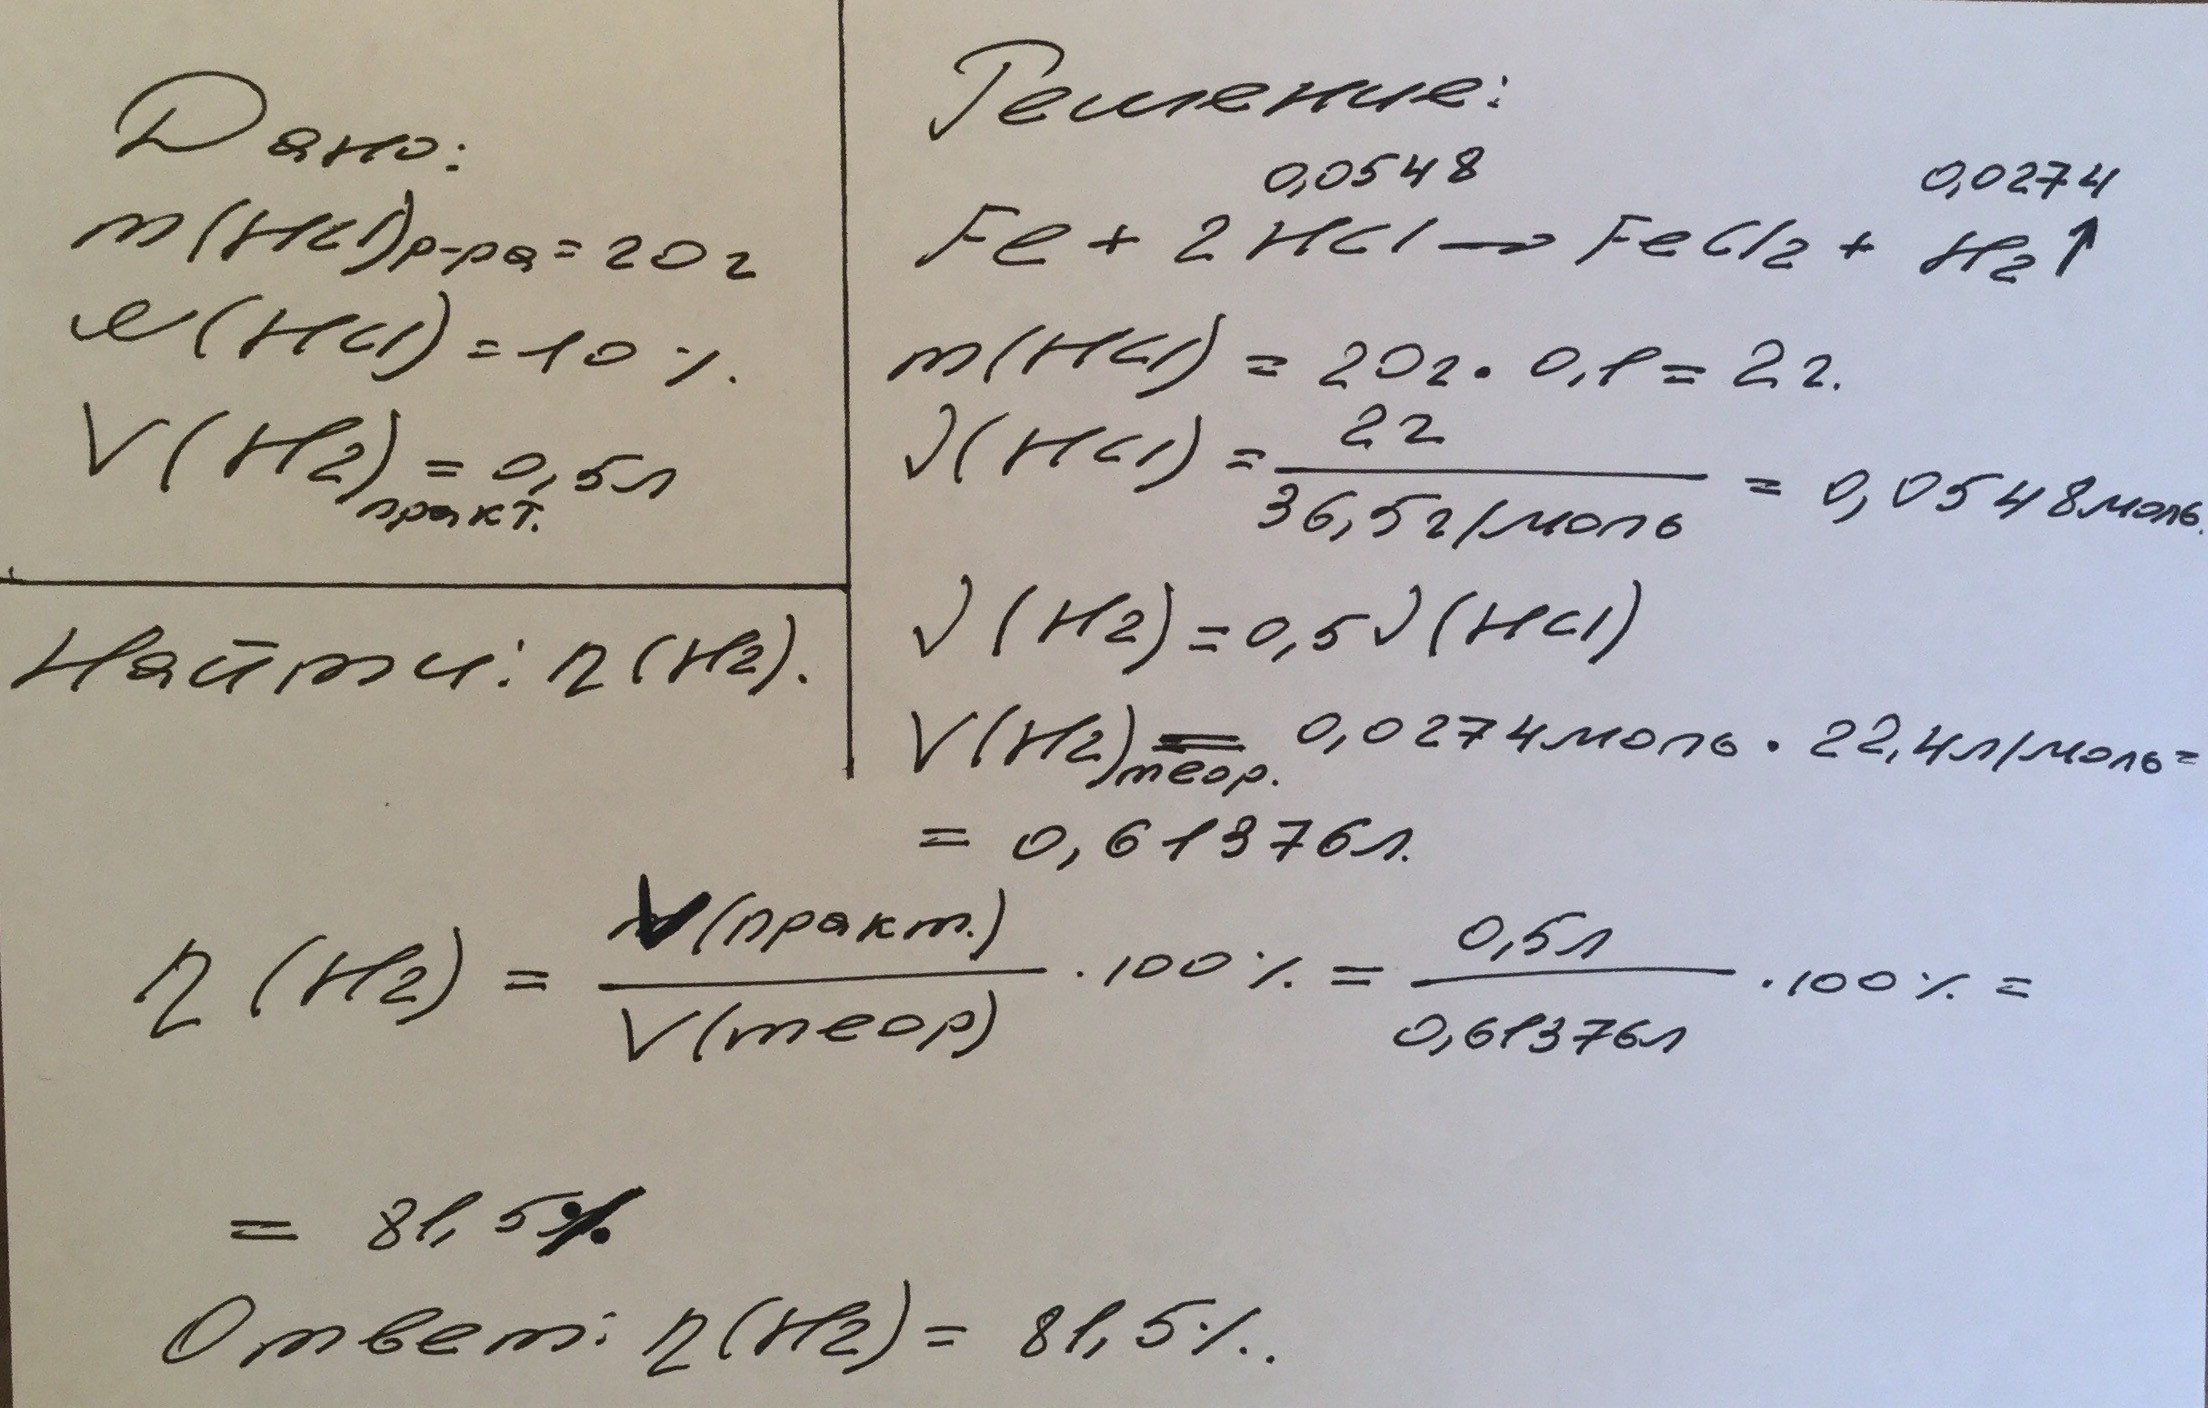 Дано:
m(HCl)р-ра = 20 г
ω(HCl) = 10 %.
V(H2)практ. = 0,5 л
Найти: η(H2).
Решение:
0,0548 0,0274
Fe + 2HCl → FeCl2 + H2↑
m(HCl) = 20 г · 0,1 = 2 г.
ν(HCl) = 2 г / 36,5 г/моль = 0,0548 моль.
ν(H2) = 0,5 ν(HCl)
V(H2)теор. = 0,0274 моль · 22,4 л/моль =
= 0,61376 л.
η(H2) = V(практ.) / V(теор) · 100 % = 0,5 л / 0,61376 л · 100 % =
= 81,5 %.
Ответ: η(H2) = 81,5 %.